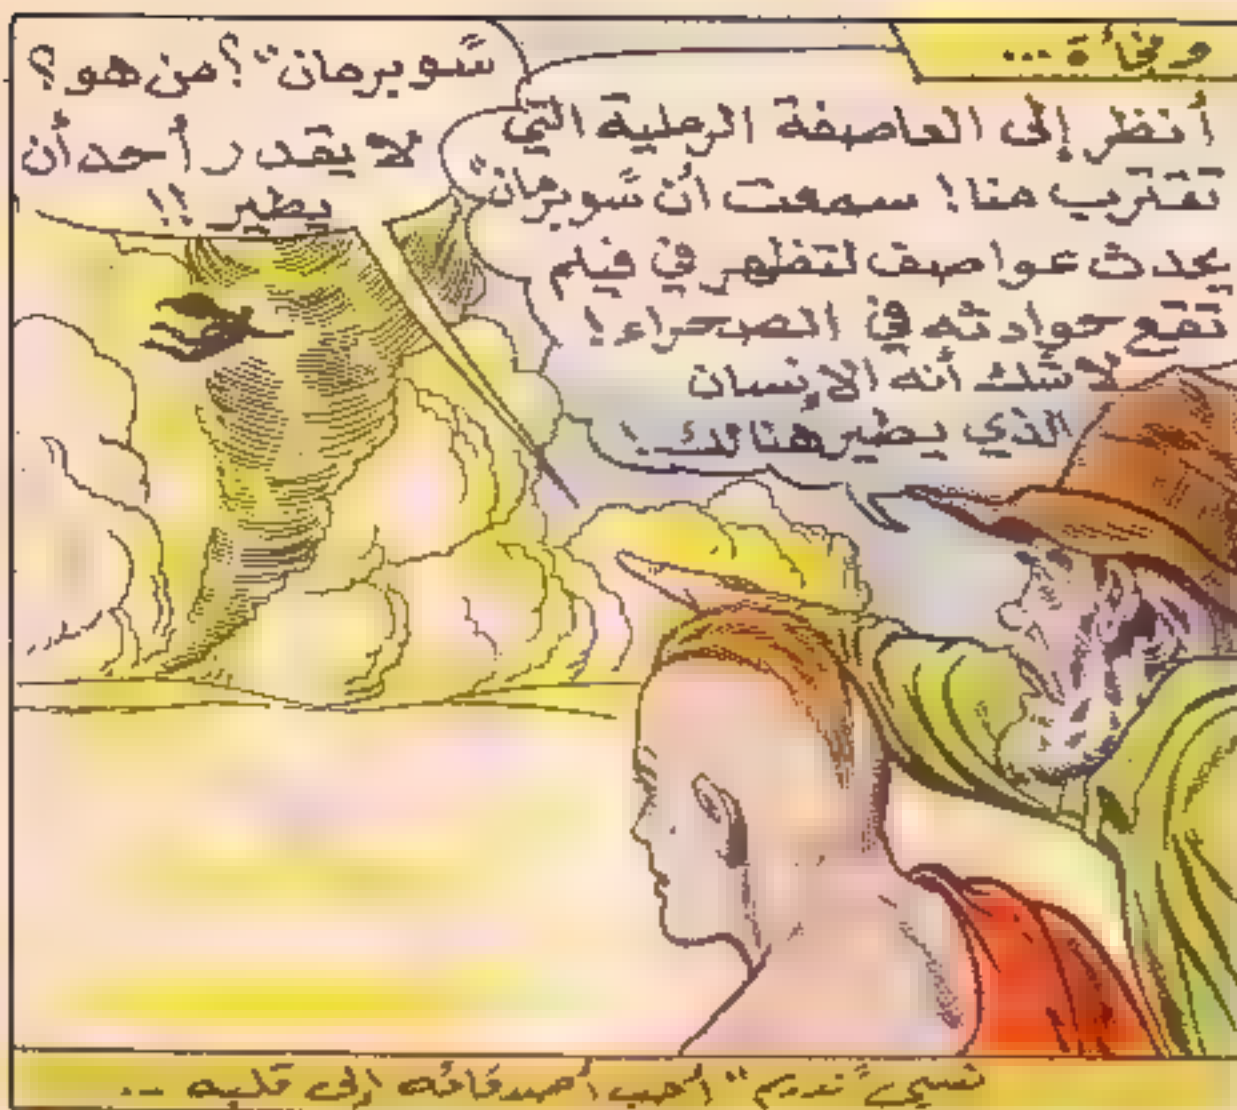 وفجأة ...
أنظر إلى العاصفة الرملية التي
تقترب هنا! سمعت أن "سوبرمان"
يحدث عواصف لتظهر في فيلم
تقع حوادثه في الصحراء!
لا شك أنه الإنسان
الذي يطير هنالك!
"سوبرمان"؟ من هو؟
لا يقدر أحد أن
يطير!!
نسي "نديم" أحب أصدقائه إلى قلبه ...